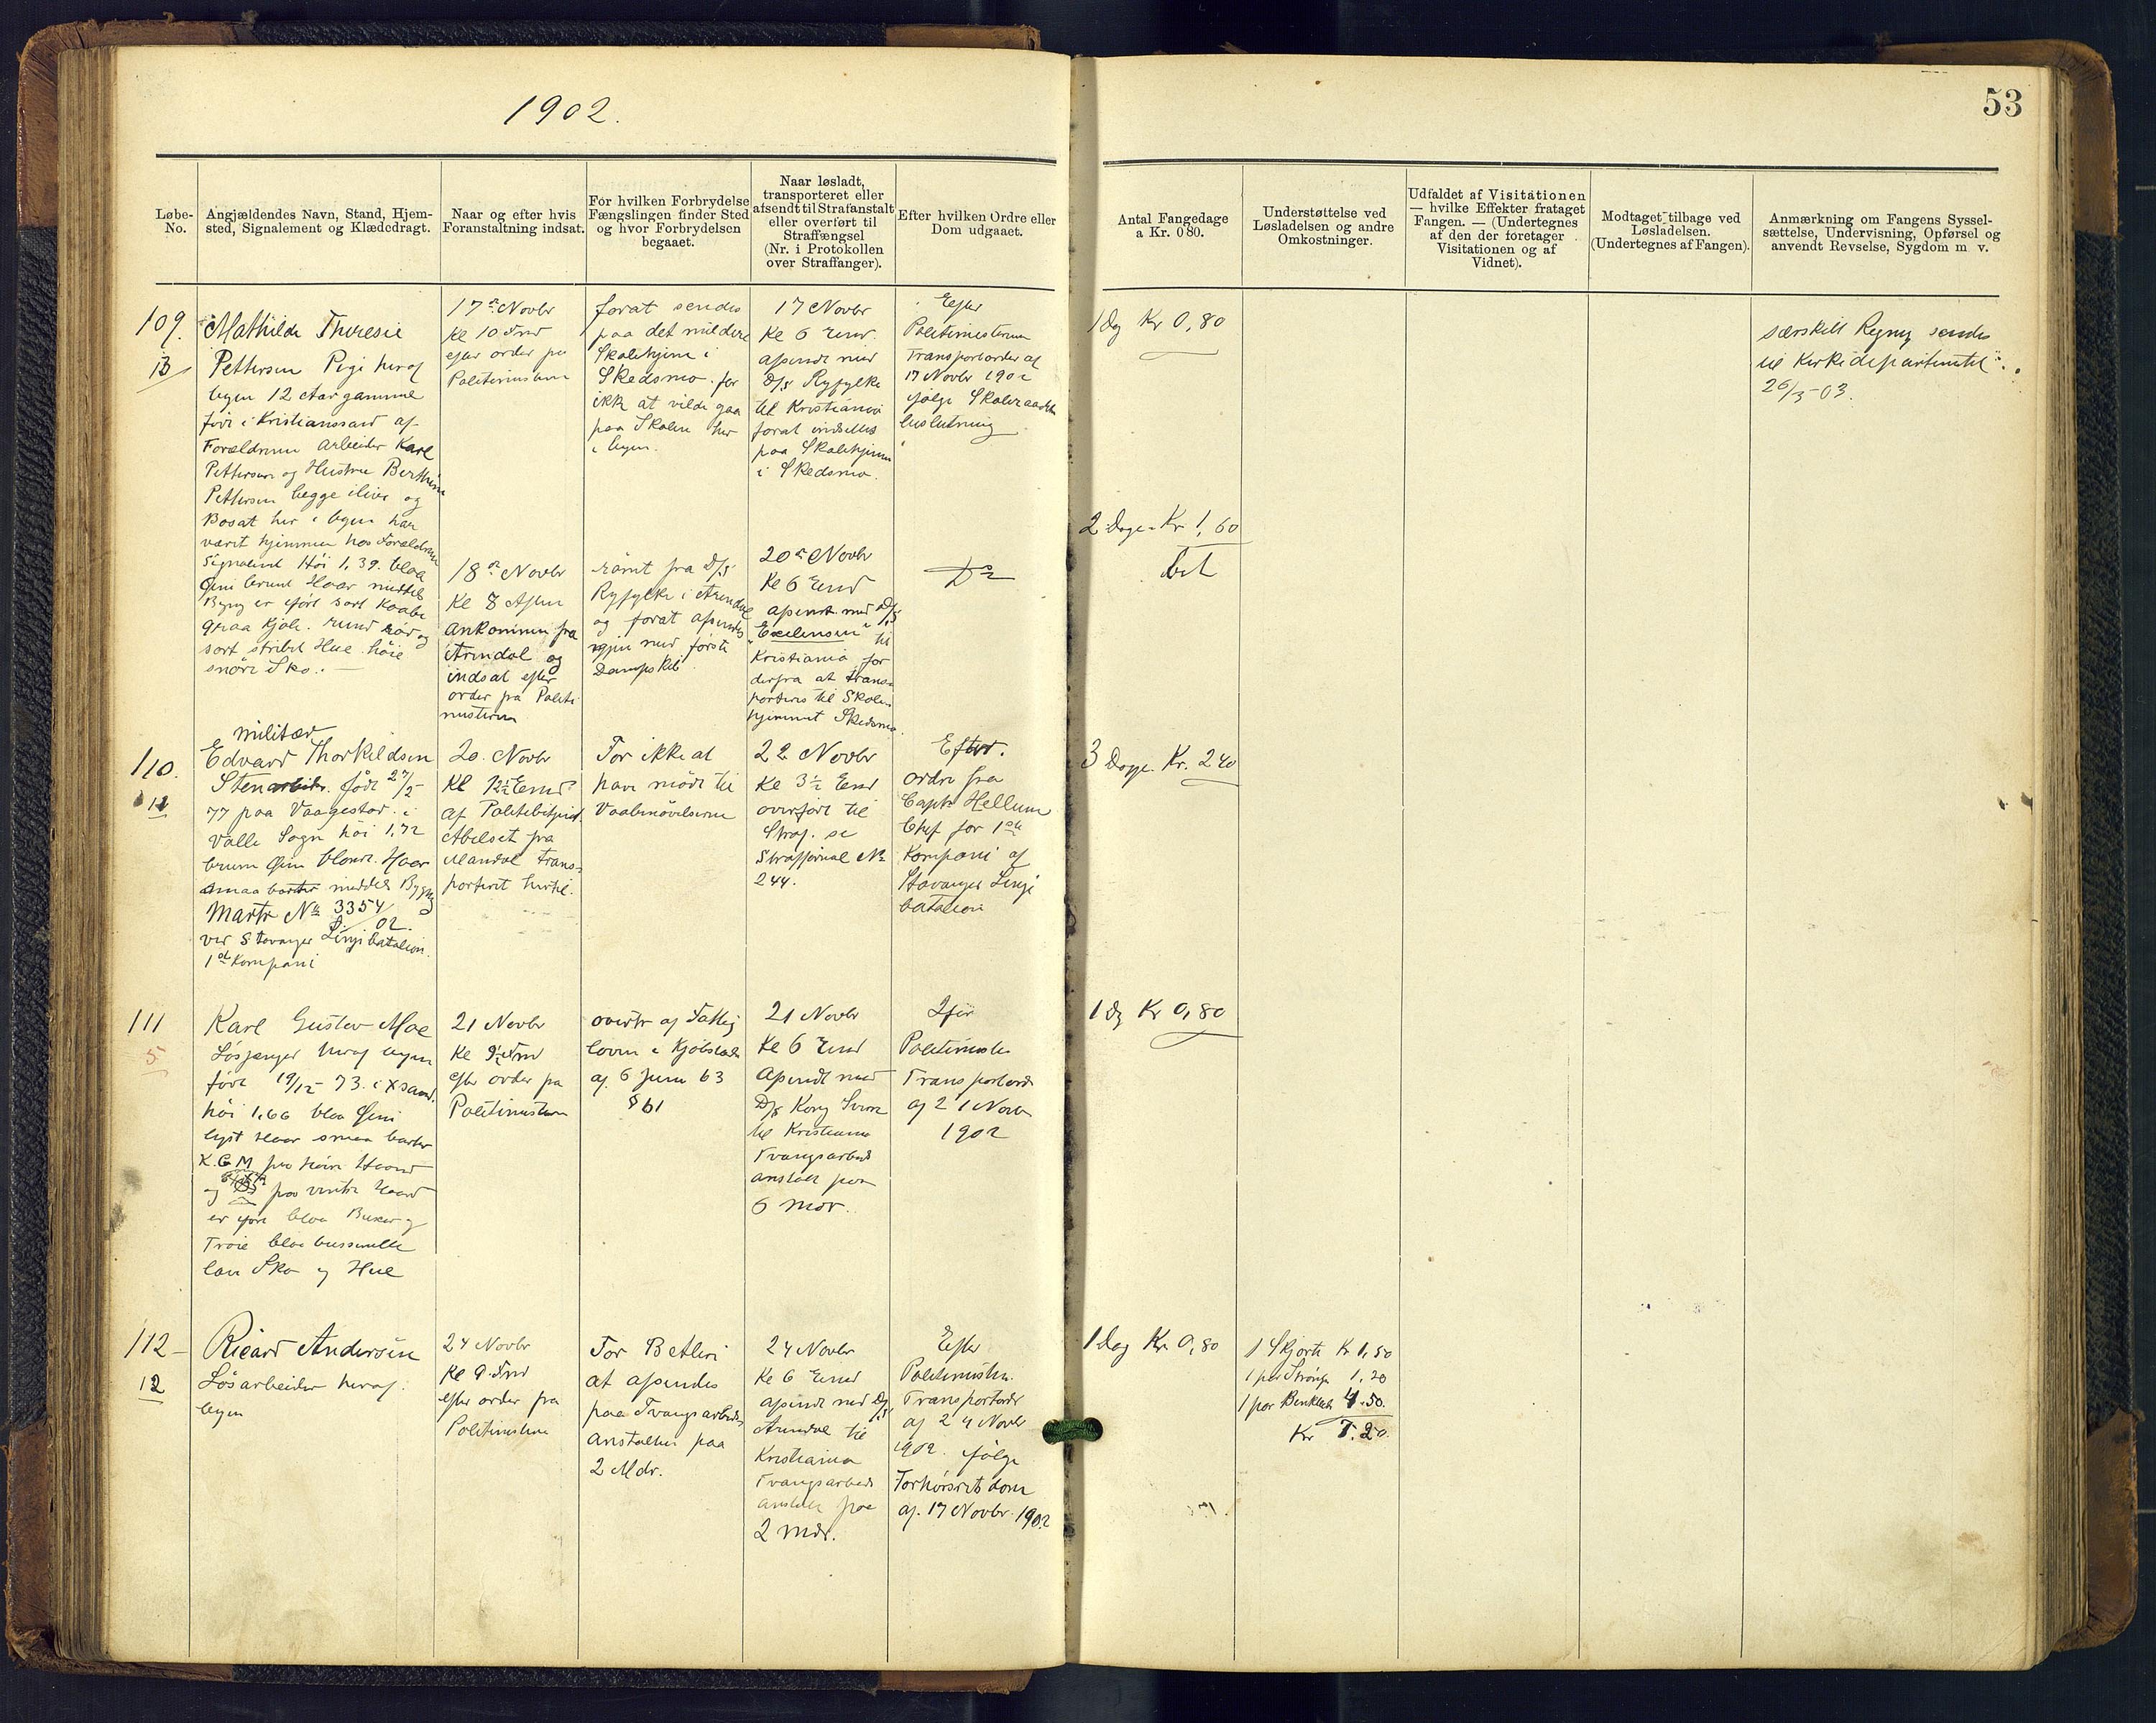 1902.
53
Løbe-
No.
Angjældendes Navn, Stand, Hjem-
sted, Signalement og Klædedragt.
Naar og efter hvis
Foranstaltning indsat.
For hvilken Forbrydelse
Fængslingen finder Sted
og hvor Forbrydelsen
begaaet.
Naar løsladt,
transporteret eller
afsendt til Strafanstalt
eller overført til
Straffængsel
(Nr. i Protokollen
over Straffanger).
Efter hvilken Ordre eller
Dom udgaaet.
Antal Fangedage
a Kr. 0 80.
Understøttelse ved
Løsladelsen og andre
Omkostninger.
Udfaldet af Visitationen
— hvilke Effekter frataget
Fangen. — (Undertegnes
af den der foretager
Visitationen og af
Vidnet).
Modtaget tilbage ved
Løsladelsen.
(Undertegnes af Fangen).
Anmærkning om Fangens Syssel-
sættelse, Undervisning, Opførsel og
anvendt Revselse, Sygdom m v.
109.
13
Mathilde Theresie
Pettersen Pige heraf
byen 12 Aar gammel
född i Kristianssand af
Forældrene Arbeider Karl
Pettersen og Hustru
Pettersen begge ilive og
Bosat her i byen har
været hjemme hos Forældrene
Signalement Höi 1,39. blaa
Öine brunt Haar middels
Bygn er iført sort Kaabe
graa Kjole. rund röd og
sort stribet Hue höie
snöre Sko.
17de Novbr
Kl 10 Fmd
efter order fra
Politimesteren
forat sendes
paa det mildere
Skolehjem i
Skedsmo for
ikke at vilde gaa
paa Skolen her
i byen.
17 Novbr
Kl 6 Emd.
afsendt med
D/s Ryfylke
til Kristiania
forat indsettes
paa Skolehjemmet
i Skedsmo.
Efter
Politimesteren
Transportorder af
17 Novbr 1902
ifölge Skoleraadets
beslutning
1 Dag Kr 0,80
særskilt Regning sendes
til Kirkedepartemtet
26/3-03.
18de Novbr
Kl 8 Aften
Ankommen fra
Arendal og
indsat efter
order fra Politi-
mesteren
römt fra D/s
Ryfylke i Arendal
og forat afsendes
igjen med förste
Dampskib
20de Novbr
Kl 6 Emd
afsendt med D/s
"Excellensen" til
Kristiania for
derfra at trans-
porteres til Skole-
hjemmet Skedsmo.
Do
2 Dage. Kr 1,60
bet
110.
12
militær
Edvard Thorkildsen
Stenarbeider. född 27/2-
77 paa Vaagestad i
Valle Sogn höi 1,72
brune Öine blond. Haar
smaa barter middels Bygn
Martr No 3354/02.
ved Stavanger Linjebatalion.
1ste Kompani
20. Novbr
Kl 12½ Emd
af Politibetjent
Abelset fra
Mandal trans-
porteret hertil.
For ikke at
have mödt til
Vaabenövelserne
22 Novbr
Kl 3½ Emd
overfört til
Straf. se
Strafjornal No
244.
Efter.
ordre fra
Captn Hellum
Chef for 1ste
Kompani af
Stavanger Linje
batalion
3 Dage. Kr. 2 40
111
5
Karl Gustav Moe
Lösgjenger heraf byen
född 19/12-73. i Xsand.
höi 1,66 blaa Öine
lyst Haar smaa barter
K.G M paa höire Haand
og paa venstre Haand
er iført blaa Buxer og
Tröie blaa busserulle
lave Sko og Hue
21 Novbr
Kl 9½ Fmd
efter order fra
Politimesteren
overtr af Fattig
loven i Kjöbstad
af 6 Juni 63
§ 61
21 Novbr
Kl 6 Emd
Afsendt med
D/s Kong Sverre
til Kristiania
Tvangsarbeids
anstalt paa
6 Mdr.
Ifør
Politimesters
Transportorder
af 21 Novbr
1902
1 Dg Kr 0,80
112
12
Ricard Andersen
Lösarbeider heraf
byen
24 Novbr
Kl 9 Fmd
efter order fra
Politimesteren
For Betleri
at afsendes
paa Tvangsarbeids
anstalten paa
2 Mdr.
24 Novbr
Kl 6 Emd
afsendt med D/s
Arendal til
Kristiania
Tvangsarbeids
anstalt paa
2 Mdr.
Efter
Politimestr.
Transportorder
af 24 Novbr
1902. ifölge
Forhörsretsdom
af. 17 Novbr. 1902
1 Dag Kr 0,80
1 Skjorte Kr 1,50
1 par Strömper 1,20
1 par Benklæder 4.50.
Kr 7.20.